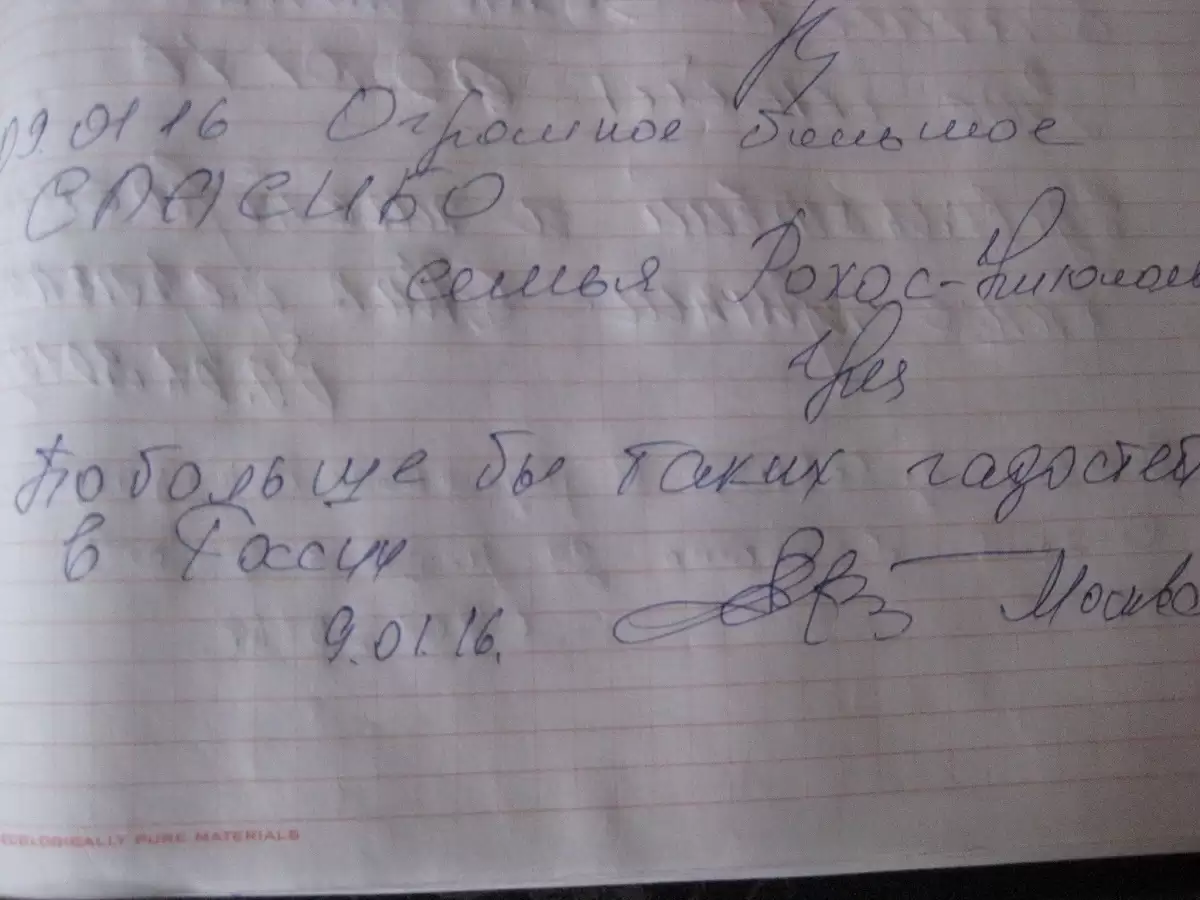 09.01 16 Огромное большое
СПАСИБО
семья Рохос-
Побольше бы таких гадостей
в России
Москва
9.01.16.
ECOLOGICALLY PURE MATERIALS